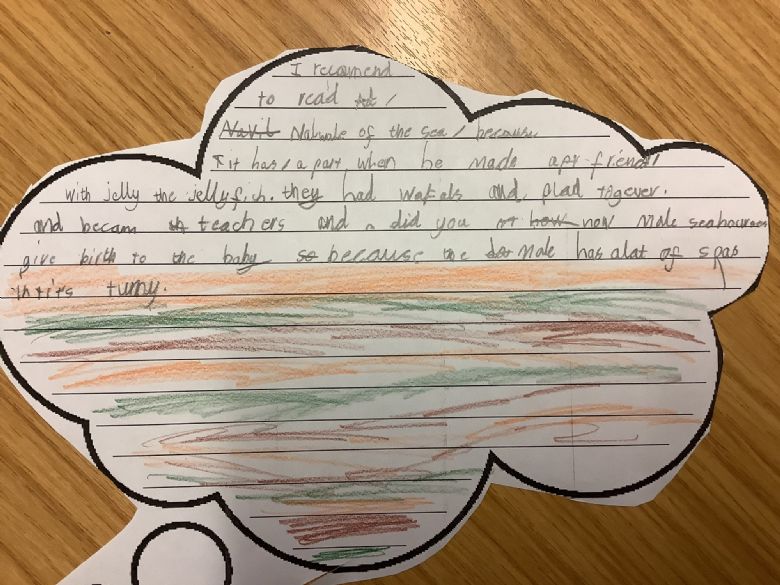 I recomend
to read
Nahwale of the sea / because
it has / a part when he made a friend
with jelly the jellyfish. they had wafals and plad tagever.
and becam teachers and a did you now male seahourses
give birth to the baby because the Male has alat of spas
in tits tumy.